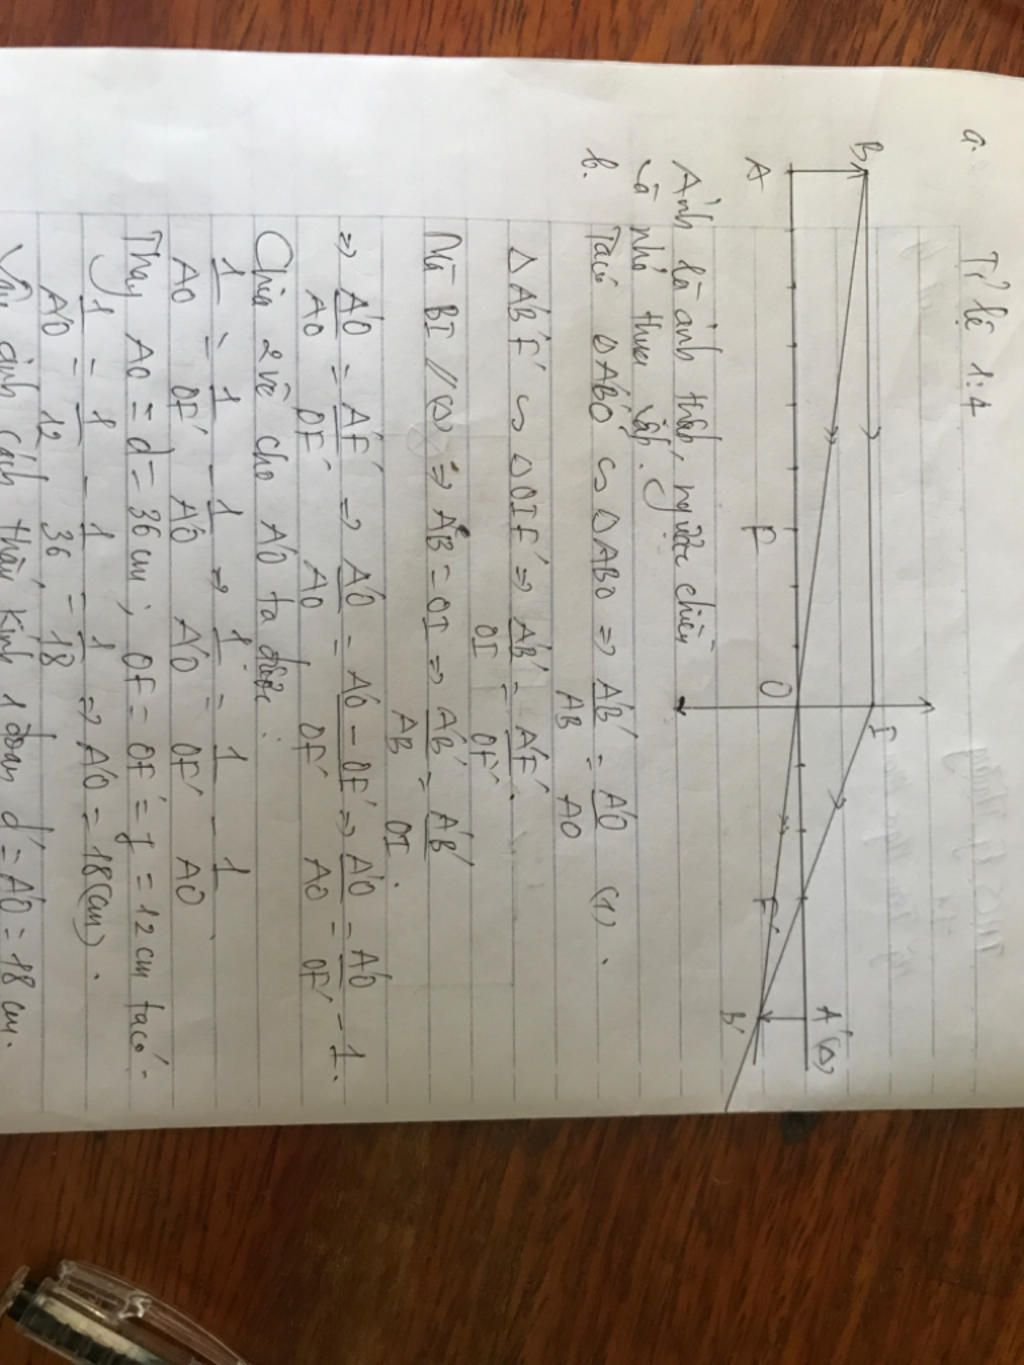 Tỉ lệ 1:4
a.
B I
A F O F' A' (Δ)
B'
Ảnh là ảnh thật, ngược chiều
và nhỏ thua vật.
b. Ta có ΔA'B'O ∽ ΔABO ⇒ A'B'/AB = A'O/AO (1).
ΔA'B'F' ∽ ΔOIF' ⇒ A'B'/OI = A'F'/OF'.
Mà BI // (Δ) ⇒ AB = OI ⇒ A'B'/AB = A'B'/OI.
⇒ A'O/AO = A'F'/OF' ⇒ A'O/AO = A'O - OF'/OF' ⇒ A'O/AO = A'O/OF' - 1.
Chia 2 vế cho A'O ta được:
1/AO = 1/OF' - 1/A'O ⇒ 1/A'O = 1/OF' - 1/AO.
Thay AO = d = 36 cm; OF = OF' = f = 12 cm ta có:
1/A'O = 1/12 - 1/36 = 1/18 ⇒ A'O = 18 (cm).
Vậy ảnh cách thấu kính 1 đoạn d' = A'O = 18 cm.